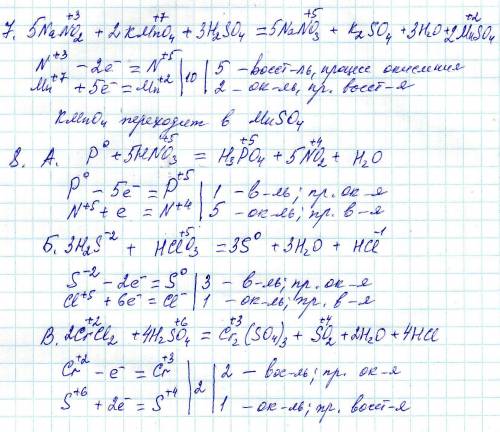 7. 5NaN⁺³O₂ + 2KMn⁺⁷O₄ + 3H₂SO₄ = 5NaN⁺⁵O₃ + K₂SO₄ + 3H₂O + 2Mn⁺²SO₄
N⁺³ - 2e⁻ = N⁺⁵ | 10 | 5 - восст-ль, процесс окисления
Mn⁺⁷ + 5e⁻ = Mn⁺² | 2 - ок-ль, пр. восст-я
KMnO₄ переходит в MnSO₄
8. А. P⁰ + 5HN⁺⁵O₃ = H₃P⁺⁵O₄ + 5N⁺⁴O₂ + H₂O
P⁰ - 5e⁻ = P⁺⁵ | 1 - в-ль; пр. ок-я
N⁺⁵ + e = N⁺⁴ | 5 - ок-ль; пр. в-я
Б. 3H₂S⁻² + HCl⁺⁵O₃ = 3S⁰ + 3H₂O + HCl⁻¹
S⁻² - 2e⁻ = S⁰ | 3 - в-ль; пр. ок-я
Cl⁺⁵ + 6e⁻ = Cl⁻ | 1 - ок-ль; пр. в-я
В. 2Cr⁺²Cl₂ + 4H₂S⁺⁶O₄ = Cr⁺³₂(SO₄)₃ + S⁺⁴O₂ + 2H₂O + 4HCl
Cr⁺² - e⁻ = Cr⁺³ | 2 | 2 - вос-ль; пр. ок-я
S⁺⁶ + 2e⁻ = S⁺⁴ | 1 - ок-ль; пр. восст-я